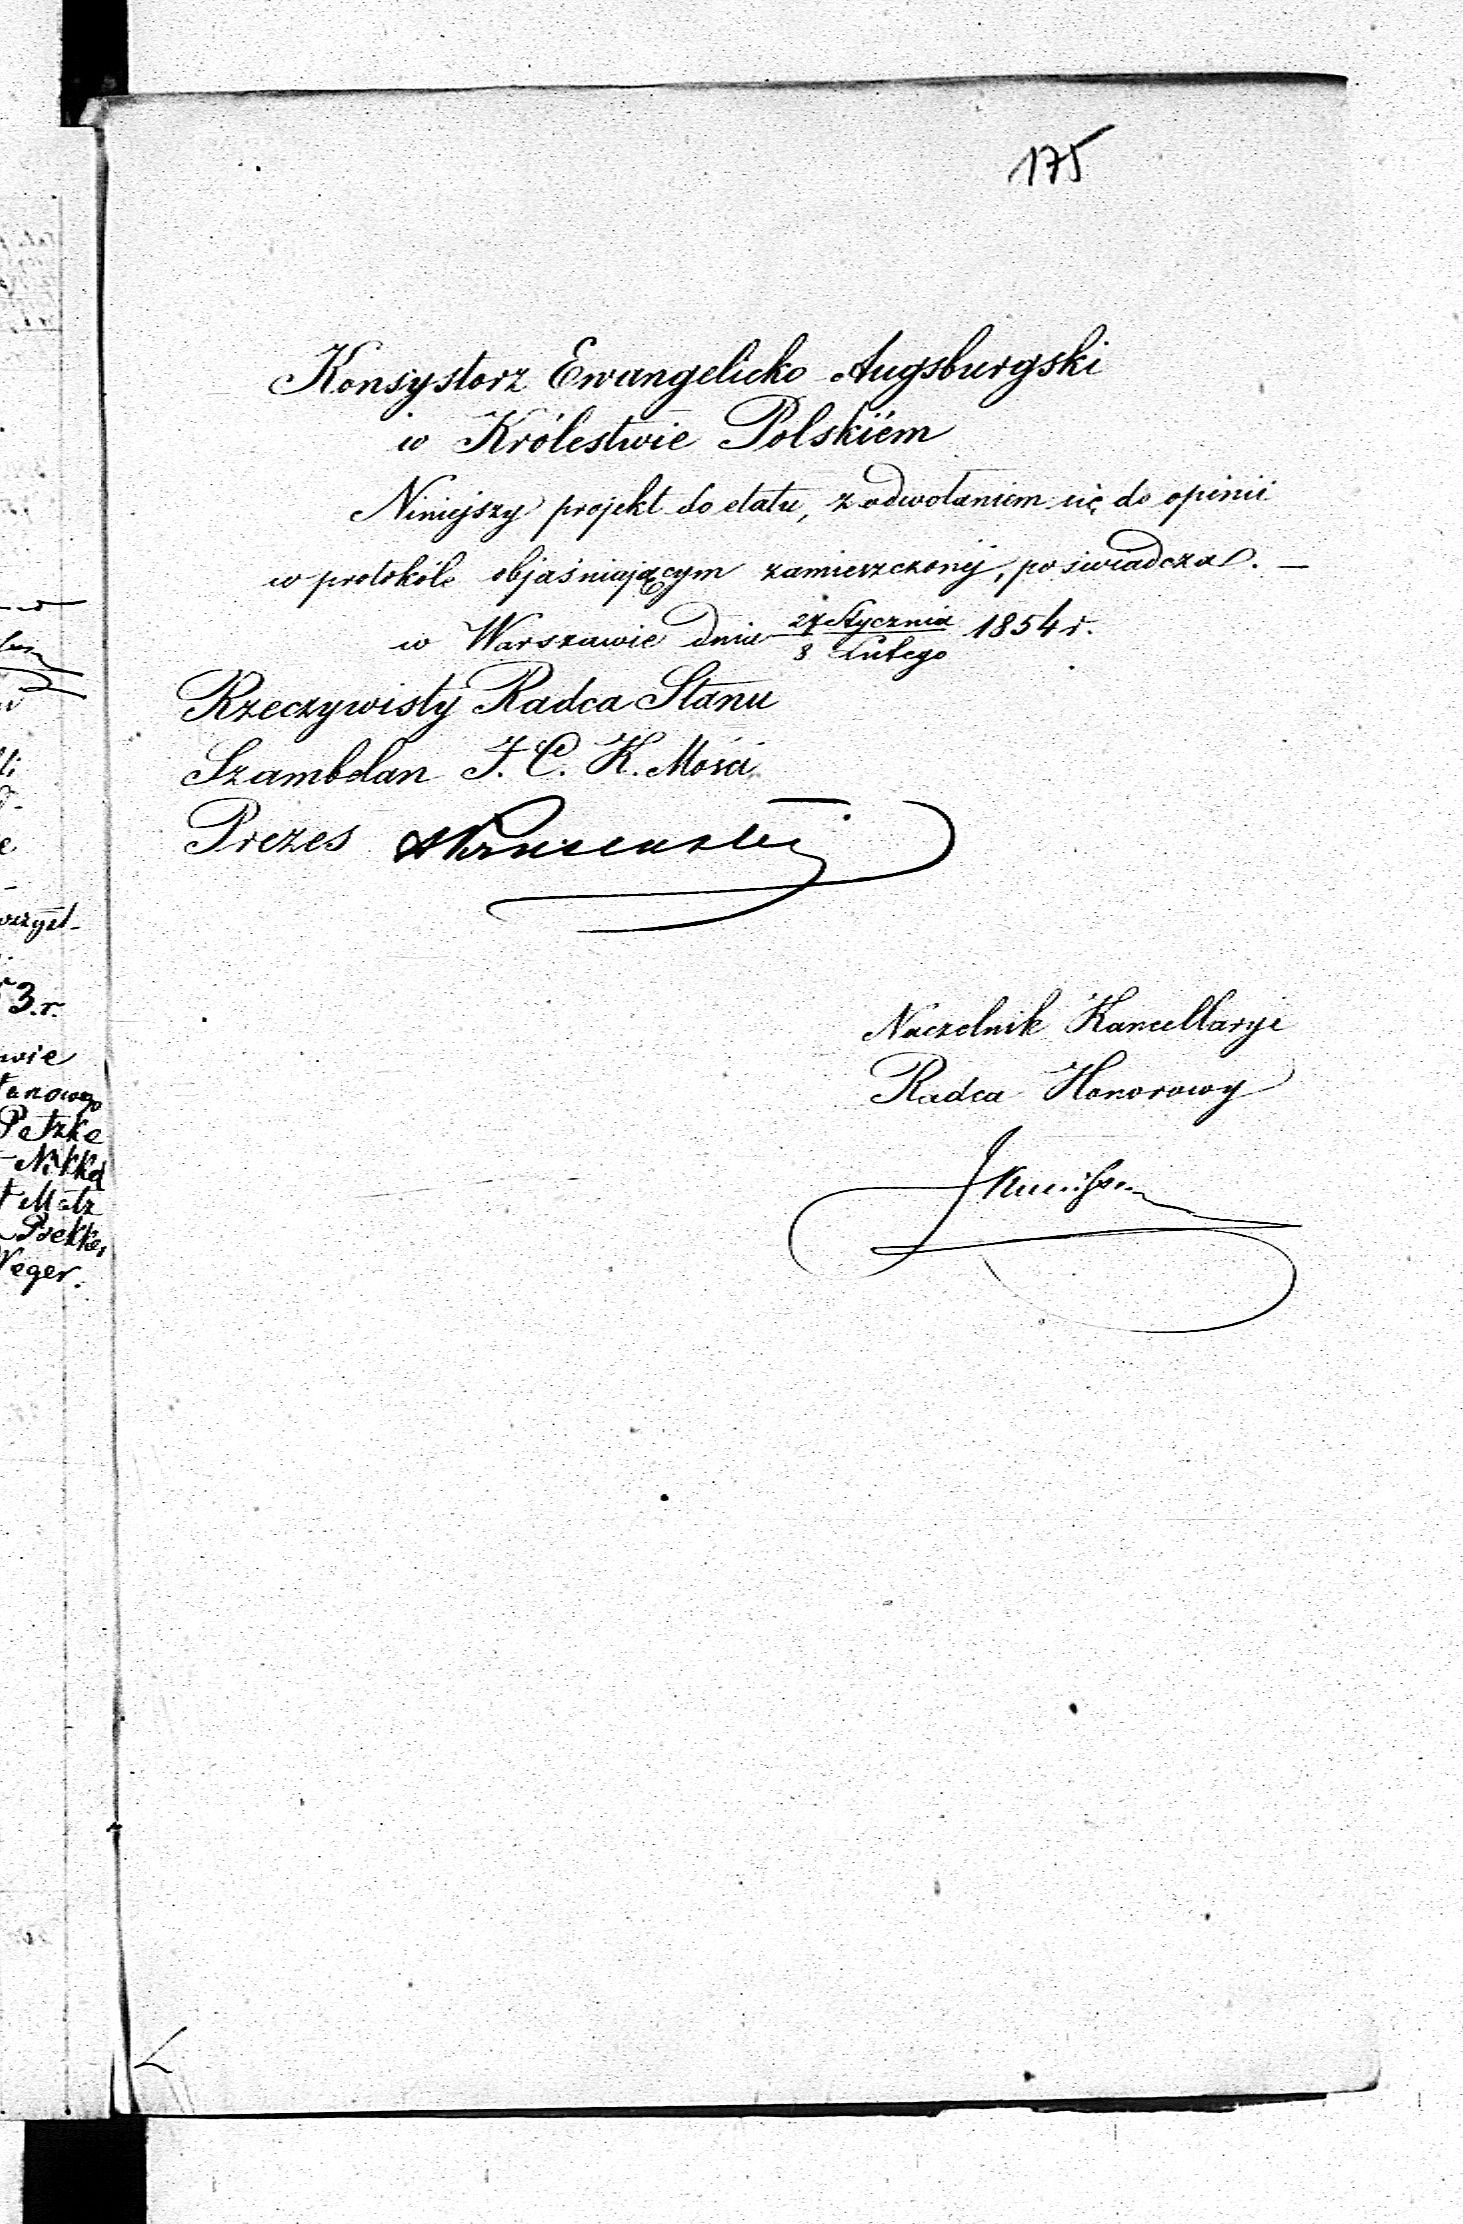 175
Konsystorz Ewangelicko Augsburgski
w Królestwie Polskiém
Niniejszy projekt do etatu, z odwołaniem się do opinii
w protokóle objaśniającym zamieszczonéj, poświadcza. —
w Warszawie dnia 27 Stycznia / 8 Lutego 1854 r.
Rzeczywisty Radca Stanu
Szambelan J. C. K. Mości
Prezes
Naczelnik Kancellaryi
Radca Honorowy
3.r.
wie
Petzke
Nikkel
Matz
Weger.